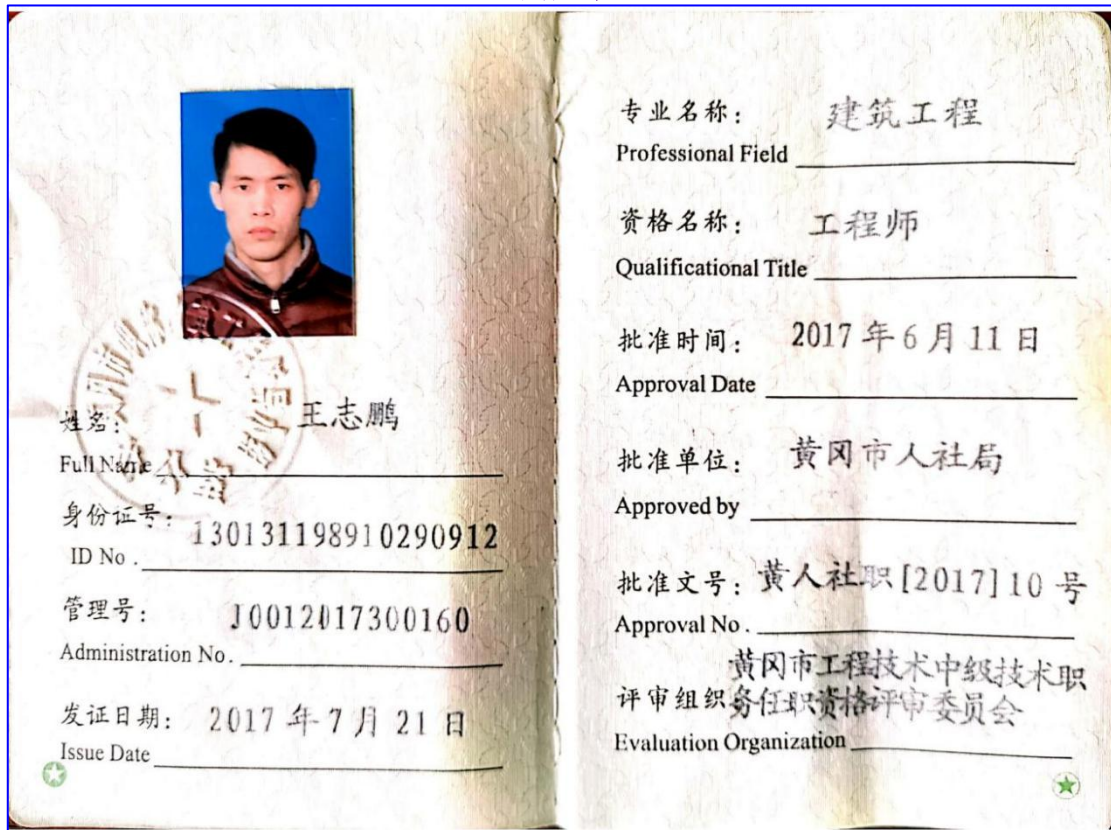 姓名： 王志鹏
Full Name
身份证号： 130131198910290912
ID No .
管理号： J0012017300160
Administration No.
发证日期： 2017 年 7 月 21 日
Issue Date
专业名称： 建筑工程
Professional Field
资格名称： 工程师
Qualificational Title
批准时间： 2017 年 6 月 11 日
Approval Date
批准单位： 黄冈市人社局
Approved by
批准文号： 黄人社职[2017] 10 号
Approval No .
黄冈市工程技术中级技术职
评审组织 务任职资格评审委员会
Evaluation Organization